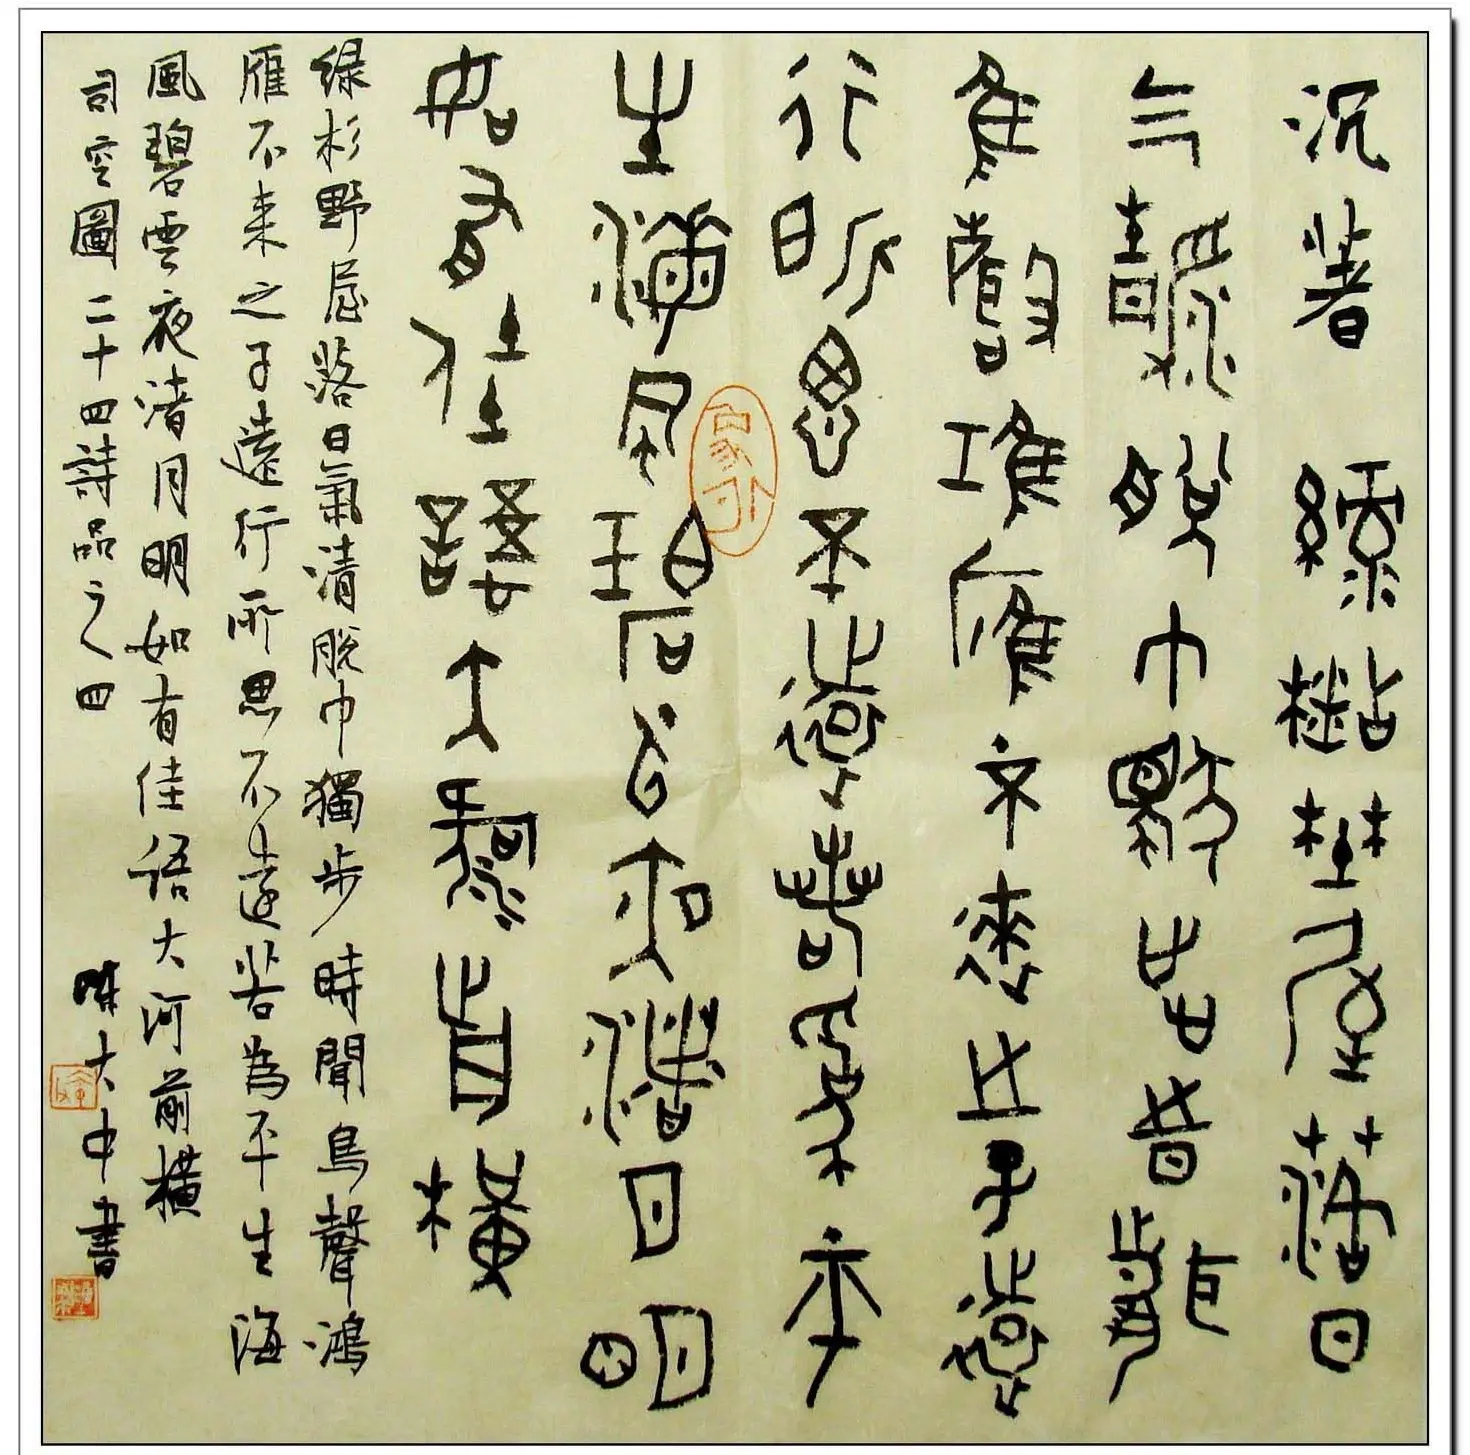 沉著 綠杉野屋落日
气清脫巾獨步時聞
鳥聲鴻雁不來之子遠
行所思不遠若為平
生海風碧云夜渚月明
如有佳語大河前橫
绿杉野屋落日氣清脫巾獨步時聞鳥聲鴻
雁不来之子遠行所思不遠若為平生海
風碧雲夜渚月明如有佳语大河前橫
司空圖二十四詩品之四 大中書